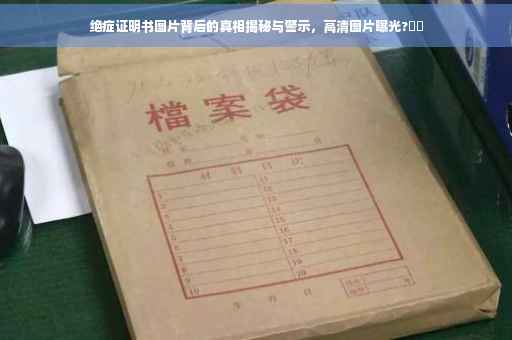 绝症证明书图片背后的真相揭秘与警示，高清图片曝光?
檔案袋
材料目次
1 11
2 12
3 13
4 14
5 15
6 16
7 17
8 18
9 19
10 20
年 月 日